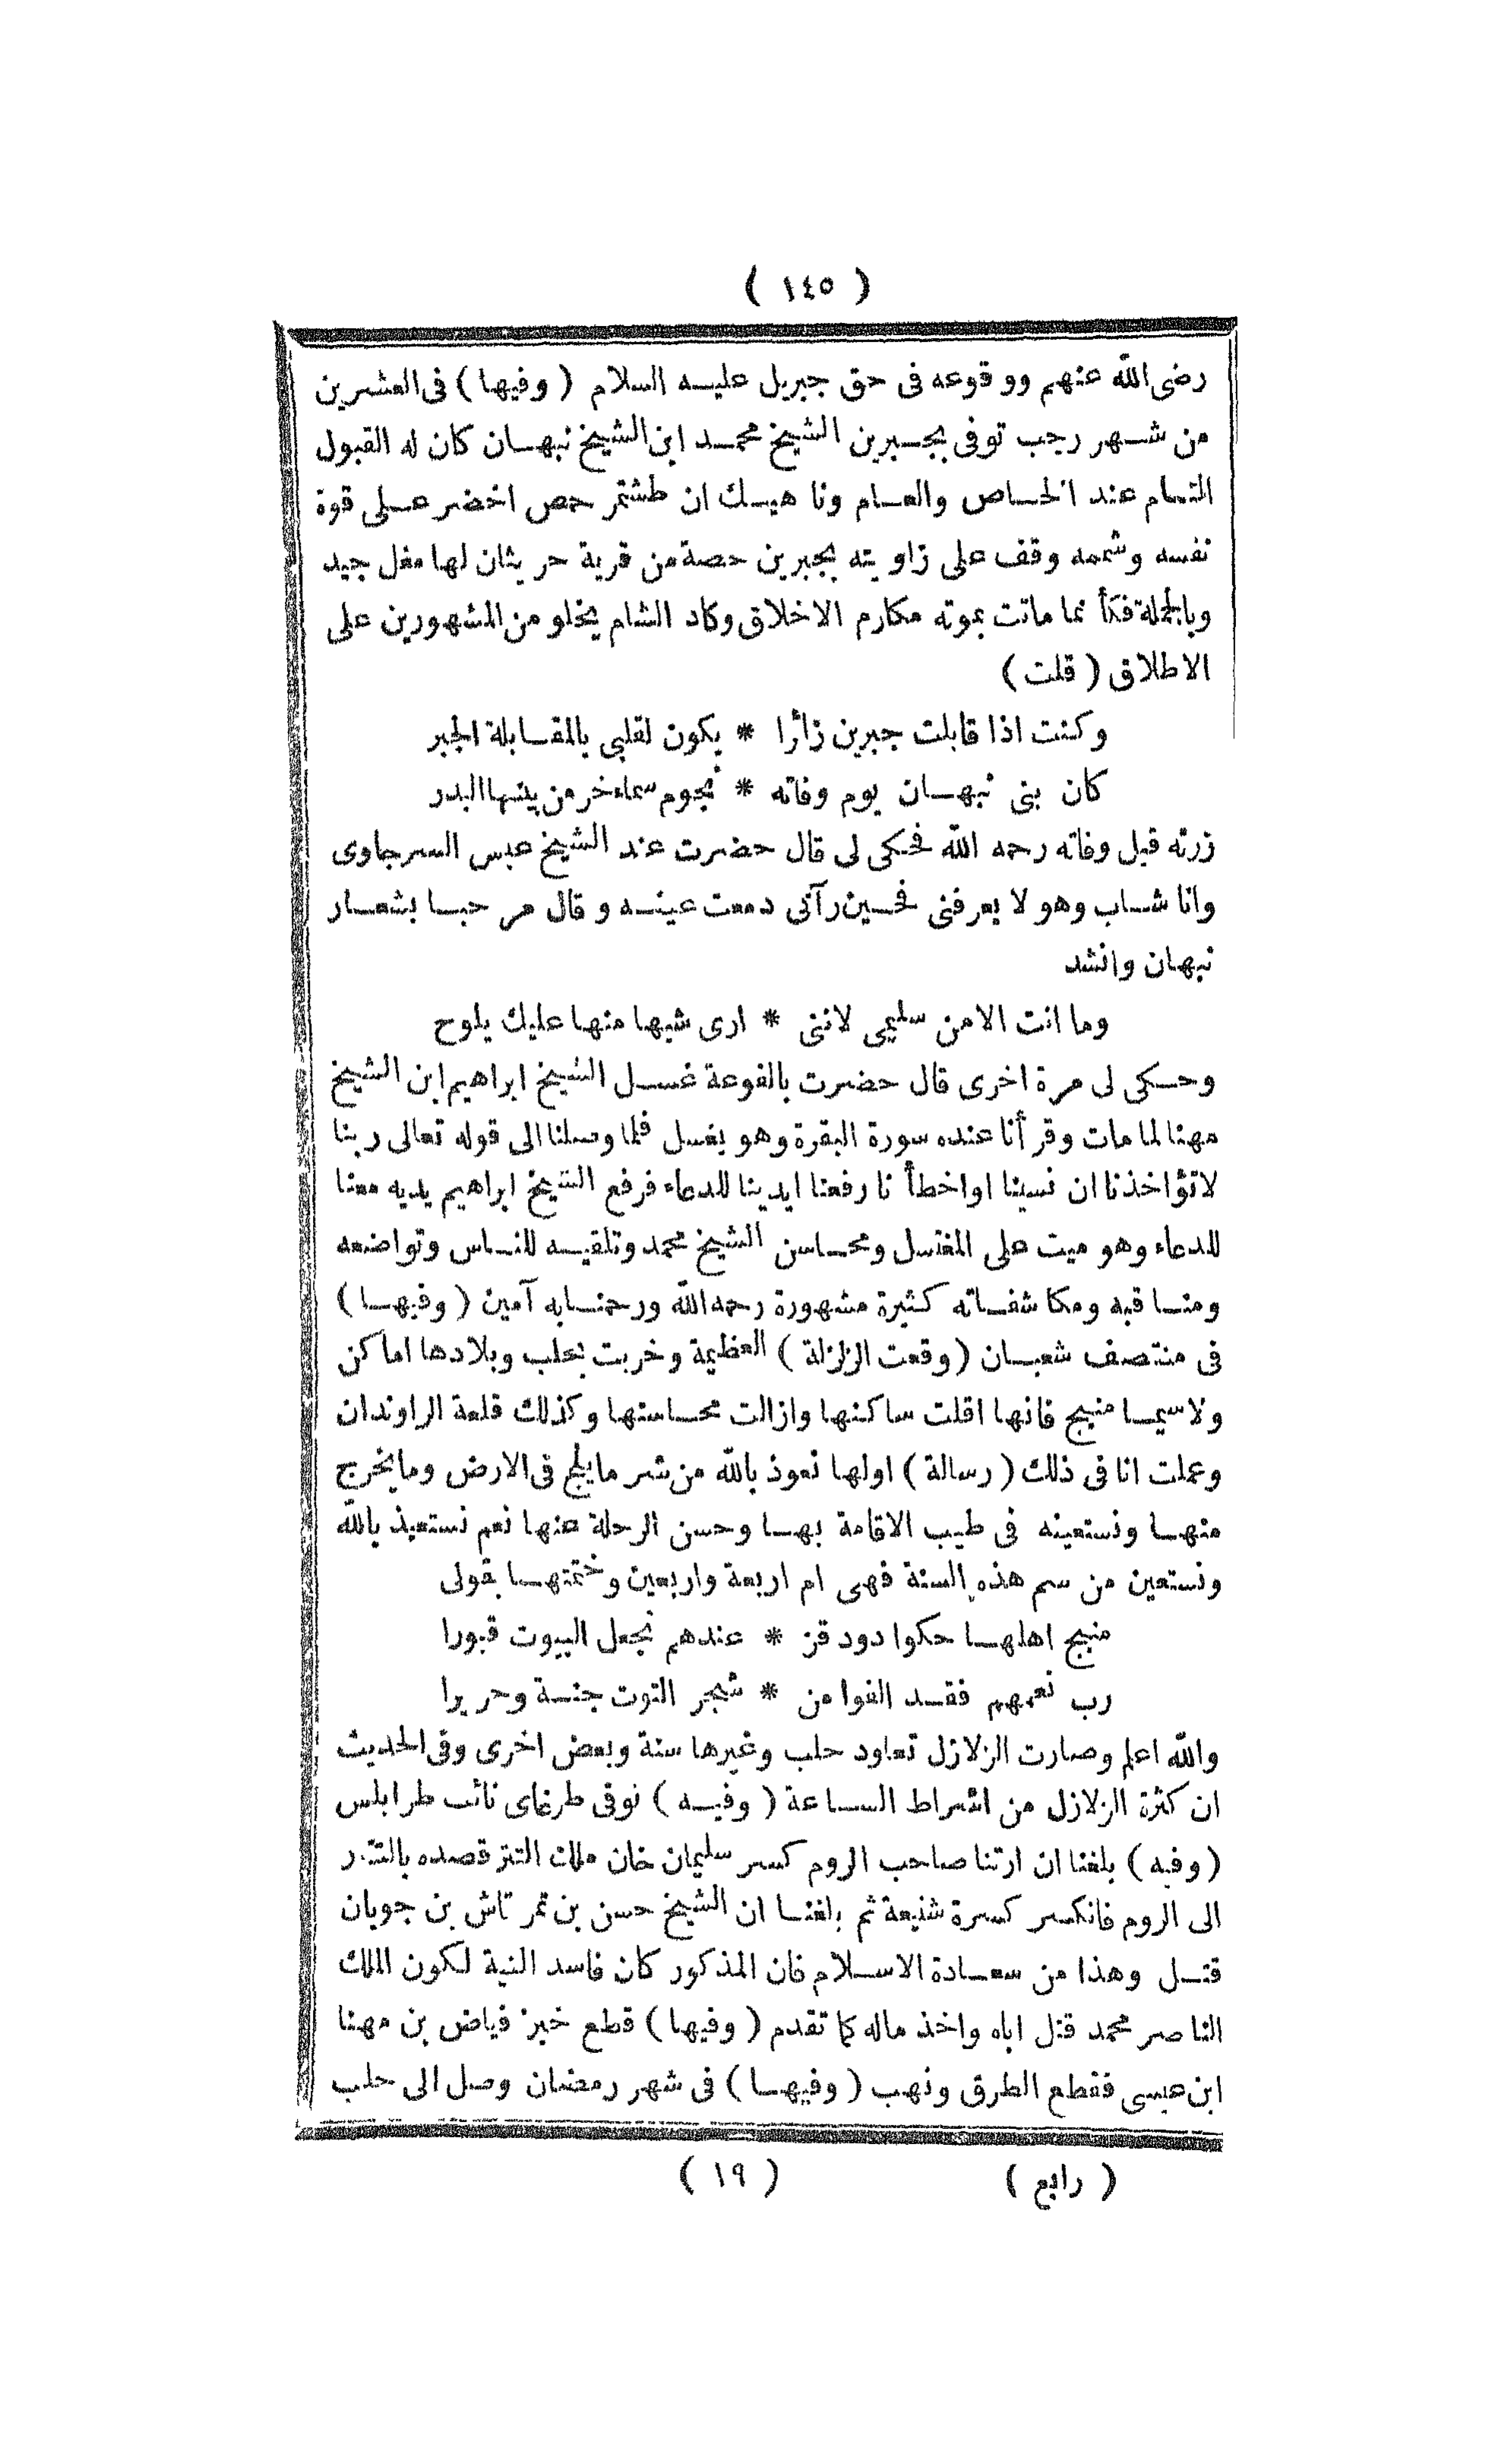 ( ١٤٥ )
رضى الله عنهم ووقوعه فى حق جبريل عليه السلام ( وفيها ) فى العشرين
من شهر رجب توفى بجبرين الشيخ محمد ابن الشيخ نبهان كان له القبول
التام عند الخاص والعام وناهيك ان طشتمر حمص اخضر على قوة
نفسه وشممه وقف على زاويته بجبرين حصة من قرية حريثان لها مغل جيد
وبالجملة فكأنما ماتت بموته مكارم الاخلاق وكاد الشام يخلو من المشهورين على
الاطلاق ( قلت )
وكنت اذا قابلت جبرين زائرا * يكون لقلبى بالمقابلة الجبر
كان بنى نبهان يوم وفاته * نجوم سماء خر من بينها البدر
زرته قبل وفاته رحمه الله فحكى لى قال حضرت عند الشيخ عبس السرجاوى
وانا شاب وهو لا يعرفنى فحين رآنى دمعت عينه وقال مرحبا بشعار
نبهان وانشد
وما انت الا من سليمى لاننى * ارى شبها منها عليك يلوح
وحكى لى مرة اخرى قال حضرت بالفوعة غسل الشيخ ابراهيم ابن الشيخ
مهنا لما مات وقرأنا عنده سورة البقرة وهو يغسل فلما وصلنا الى قوله تعالى ربنا
لاتؤاخذنا ان نسينا او اخطأنا رفعنا ايدينا للدعاء فرفع الشيخ ابراهيم يديه معنا
للدعاء وهو ميت على المغتسل ومحاسن الشيخ محمد وتلقيه للناس وتواضعه
ومناقبه ومكاشفاته كثيرة مشهورة رحمه الله ورحمنا به آمين ( وفيها )
فى منتصف شعبان ( وقعت الزلزلة ) العظيمة وخربت بحلب وبلادها اماكن
ولاسيما منبج فانها اقلت ساكنها وازالت محاسنها وكذلك قلعة الراوندان
وعملت انا فى ذلك ( رسالة ) اولها نعوذ بالله من شر ما يلج فى الارض وما يخرج
منها ونستعينه فى طيب الاقامة بها وحسن الرحلة عنها نعم نستعيذ بالله
ونستعين من سم هذه السنة فهى ام اربعة واربعين وختمتها بقولى
منبج اهلها حكوا دود قز * عندهم تجعل البيوت قبورا
رب نعمهم فقد الفوا من * شجر التوت جنة وحريرا
والله اعلم وصارت الزلازل تعاود حلب وغيرها سنة وبعض اخرى وفى الحديث
ان كثرة الزلازل من اشراط الساعة ( وفيه ) توفى طرغاى نائب طرابلس
( وفيه ) بلغنا ان ارتنا صاحب الروم كسر سليمان خان ملك التتر قصده بالتتر
الى الروم فانكسر كسرة شنيعة ثم بلغنا ان الشيخ حسن بن تمرتاش بن جوبان
قتل وهذا من سعادة الاسلام فان المذكور كان فاسد النية لكون الملك
الناصر محمد قتل اباه واخذ ماله كما تقدم ( وفيها ) قطع خبز فياض بن مهنا
ابن عيسى فقطع الطرق ونهب ( وفيها ) فى شهر رمضان وصل الى حلب
( رابع ) ( ١٩ )